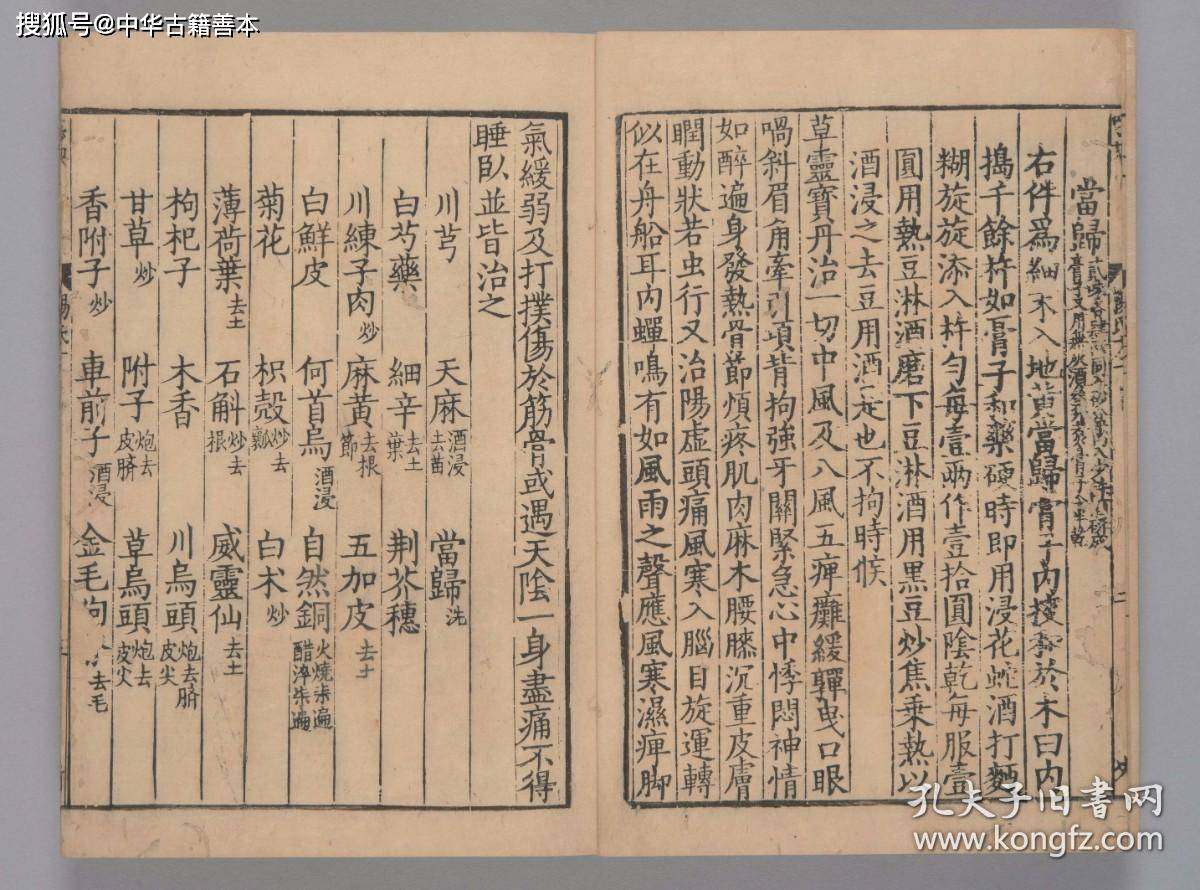 搜狐号@中华古籍善本
當歸
右件爲細末入地黄當歸膏子內搜和於木臼內
搗千餘杵如膏子和藥硬時即用浸花蛇酒打麵
糊旋旋添入杵匀每壹兩作壹拾圓陰乾每服壹
圓用熱豆淋酒磨下豆淋酒用黒豆炒焦乗熱以
酒浸之去豆用酒是也不拘時候
草靈寳丹治一切中風及八風五痺癱緩嚲曵口眼
喎斜眉角牽引項背拘強牙關緊急心中悸悶神情
如醉遍身發熱骨節煩疼肌肉麻木腰膝沉重皮膚
瞤動狀若虫行又治陽虚頭痛風寒入腦目旋運轉
似在舟船耳內蟬鳴有如風雨之聲應風寒濕痺脚
氣緩弱及打撲傷於筋骨或遇天陰一身盡痛不得
睡臥並皆治之
川芎 天麻酒浸去苗 當歸洗
白芍藥 細辛去土葉 荆芥穗
川練子肉炒 麻黄去根節 五加皮去土
白鮮皮 何首烏酒浸 自然銅火燒柒遍醋淬柒遍
菊花 枳殼炒去瓤 白术炒
薄荷葉去土 石斛炒去根 威靈仙去土
枸杞子 木香 川烏頭炮去臍皮尖
甘草炒 附子炮去皮臍 草烏頭炮去皮尖
香附子炒 車前子酒浸 金毛狗 去毛
孔夫子旧书网
www.kongfz.com